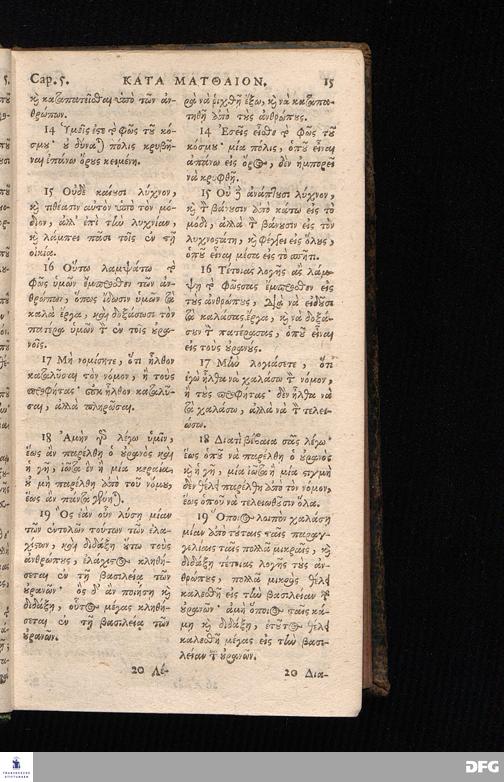 Cap. 5. ΚΑΤΑ ΜΑΤΘΑΙΟΝ. 15
καὶ καταπατεῖσθαι ὑπὸ τῶν ἀν-
θρώπων.
14 Ὑμεῖς ἐστε τὸ φῶς τοῦ κό-
σμου· οὐ δύναται πόλις κρυβῆ-
ναι ἐπάνω ὄρους κειμένη.
15 Οὐδὲ καίουσι λύχνον,
καὶ τιθέασιν αὐτὸν ὑπὸ τὸν μό-
διον, ἀλλ' ἐπὶ τὴν λυχνίαν,
καὶ λάμπει πᾶσι τοῖς ἐν τῇ
οἰκίᾳ.
16 Οὕτω λαμψάτω τὸ
φῶς ὑμῶν ἔμπροσθεν τῶν ἀν-
θρώπων, ὅπως ἴδωσιν ὑμῶν τὰ
καλὰ ἔργα, καὶ δοξάσωσι τὸν
πατέρα ὑμῶν τὸν ἐν τοῖς οὐρα-
νοῖς.
17 Μὴ νομίσητε, ὅτι ἦλθον
καταλῦσαι τὸν νόμον, ἢ τοὺς
προφήτας· οὐκ ἦλθον καταλῦ-
σαι, ἀλλὰ πληρῶσαι.
18 Ἀμὴν γὰρ λέγω ὑμῖν,
ἕως ἂν παρέλθῃ ὁ οὐρανὸς καὶ
ἡ γῆ, ἰῶτα ἓν ἢ μία κεραία,
οὐ μὴ παρέλθῃ ἀπὸ τοῦ νόμου,
ἕως ἂν πάντα γένηται.
19 Ὃς ἐὰν οὖν λύσῃ μίαν
τῶν ἐντολῶν τούτων τῶν ἐλα-
χίστων, καὶ διδάξῃ οὕτω τοὺς
ἀνθρώπους, ἐλάχιστος κληθή-
σεται ἐν τῇ βασιλείᾳ τῶν
οὐρανῶν· ὃς δ' ἂν ποιήσῃ καὶ
διδάξῃ, οὗτος μέγας κληθή-
σεται ἐν τῇ βασιλείᾳ τῶν
οὐρανῶν.
20 Λέ-
ρὰ νὰ ῥιχθῇ ἔξω, καὶ νὰ καταπα-
τηθῇ ἀπὸ τοὺς ἀνθρώπους.
14 Ἐσεῖς εἶσθε τὸ φῶς τοῦ
κόσμου· μία πόλις, ὁποῦ εἶναι
ἀπάνω εἰς ὄρος, δὲν ἠμπορεῖ
νὰ κρυφθῇ.
15 Οὐδὲ ἀνάπτουσι λύχνον,
καὶ τὸν βάνουσιν ἀπὸ κάτω εἰς τὸ
μόδι, ἀλλὰ τὸν βάνουσιν εἰς τὸν
λυχνοστάτη, καὶ φέγγει εἰς ὅλους,
ὁποῦ εἶναι μέσα εἰς τὸ σπῆτι.
16 Τέτοιας λογῆς ἂς λάμ-
ψῃ τὸ φῶς σας ἔμπροσθεν εἰς
τοὺς ἀνθρώπους, διὰ νὰ εἰδοῦσι
τὰ καλά σας ἔργα, καὶ νὰ δοξά-
σουν τὸν πατέρα σας, ὁποῦ εἶναι
εἰς τοὺς οὐρανούς.
17 Μὴν λογιάσετε, ὅτι
ἐγὼ ἦλθα νὰ χαλάσω τὸν νόμον,
ἢ τοὺς προφήτας· δὲν ἦλθα νὰ
τὰ χαλάσω, ἀλλὰ νὰ τὰ τελει-
ώσω.
18 Διατὶ βέβαια σᾶς λέγω·
ἕως ὁποῦ νὰ παρέλθῃ ὁ οὐρανὸς
καὶ ἡ γῆ, μία ἰῶτα ἢ μία στιγμὴ
δὲν θέλει παρέλθῃ ἀπὸ τὸν νόμον,
ἕως ὁποῦ νὰ τελειωθοῦσιν ὅλα.
19 Ὅποιος λοιπὸν χαλάσῃ
μίαν ἀπὸ τούταις ταῖς παραγ-
γελίαις ταῖς πολλὰ μικραῖς, καὶ
διδάξῃ τέτοιας λογῆς τοὺς ἀν-
θρώπους, πολλὰ μικρὸς θέλει
καλεσθῇ εἰς τὴν βασιλείαν τῶν
οὐρανῶν· ἀμὴ ὅποιος ταῖς κά-
μῃ καὶ διδάξῃ, ἐτοῦτος θέλει
καλεσθῇ μέγας εἰς τὴν βασι-
λείαν τῶν οὐρανῶν.
20 Δια-
FRANCKESCHE
STIFTUNGEN
DFG